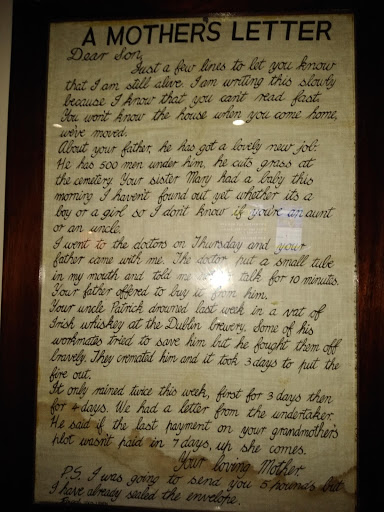 A MOTHER'S LETTER
Dear Son,
Just a few lines to let you know
that I am still alive. I am writing this slowly
because I know that you can't read fast.
You won't know the house when you come home,
we've moved.
About your father, he has got a lovely new job.
He has 500 men under him, he cuts grass at
the cemetery. Your sister Mary had a baby this
morning I haven't found out yet whether its a
boy or a girl so I don't know if you're an aunt
or an uncle.
I went to the doctors on Thursday and your
father came with me. The doctor put a small tube
in my mouth and told me talk for 10 minutes.
Your father offered to buy it from him.
Your uncle Patrick drowned last week in a vat of
Irish whiskey at the Dublin brewery. Some of his
workmates tried to save him but he fought them off
bravely. They cremated him and it took 3 days to put the
fire out.
It only rained twice this week, first for 3 days then
for 4 days. We had a letter from the undertaker.
He said if the last payment on your grandmother's
plot wasn't paid in 7 days, up she comes.
Your loving Mother
P.S. I was going to send you 5 pounds but
I have already sealed the envelope.